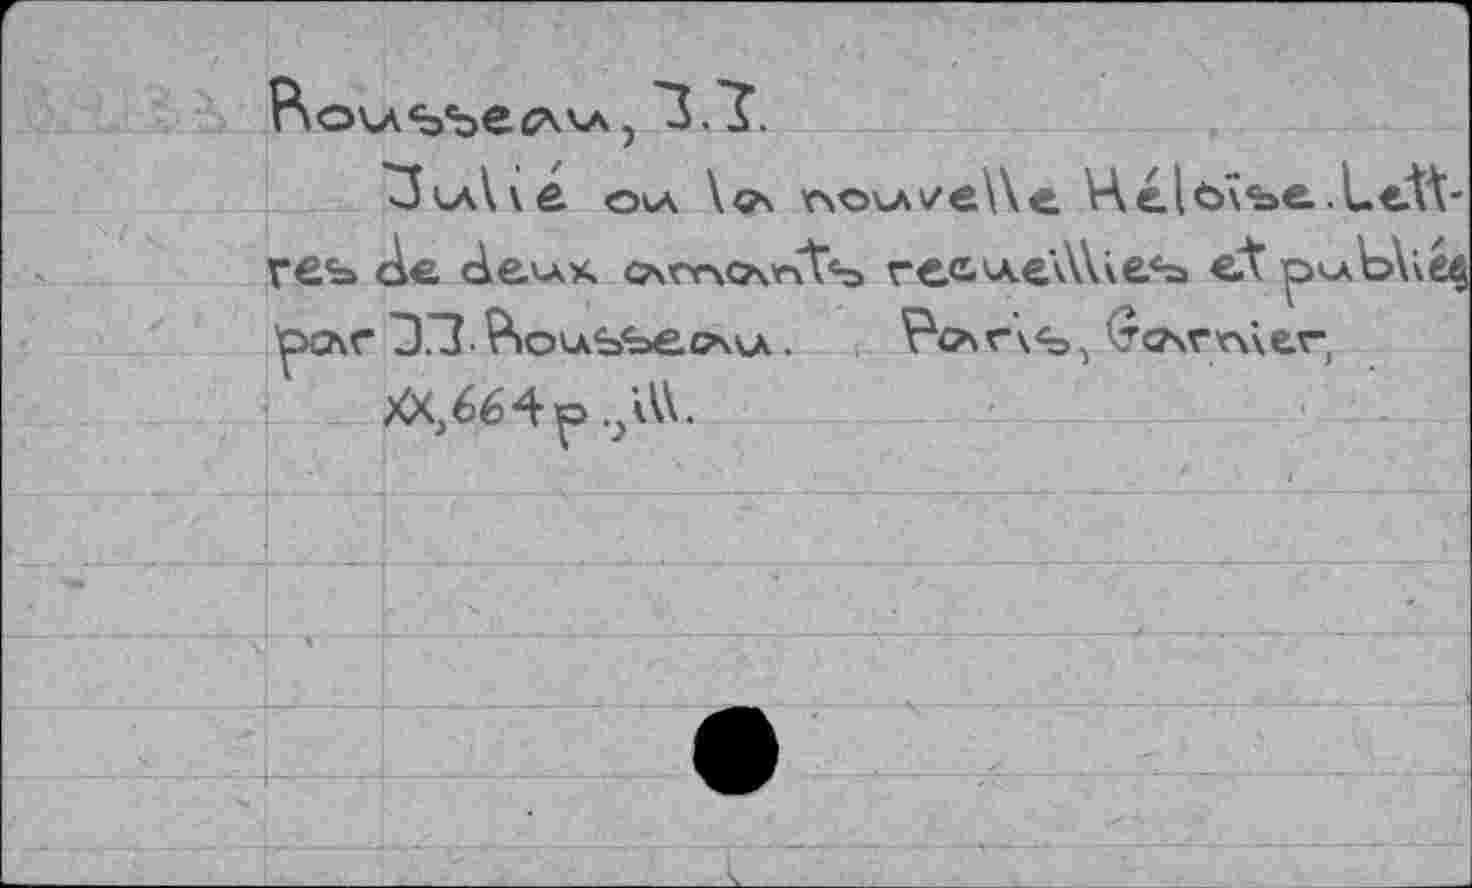 Rousseau, J.J.
Julié ou la nouvelle Héloïse. Lett-
res de deux amants recueillies et publiées
par J.J. Rousseau. Paris, Garnier,
XX, 664 p., ill.